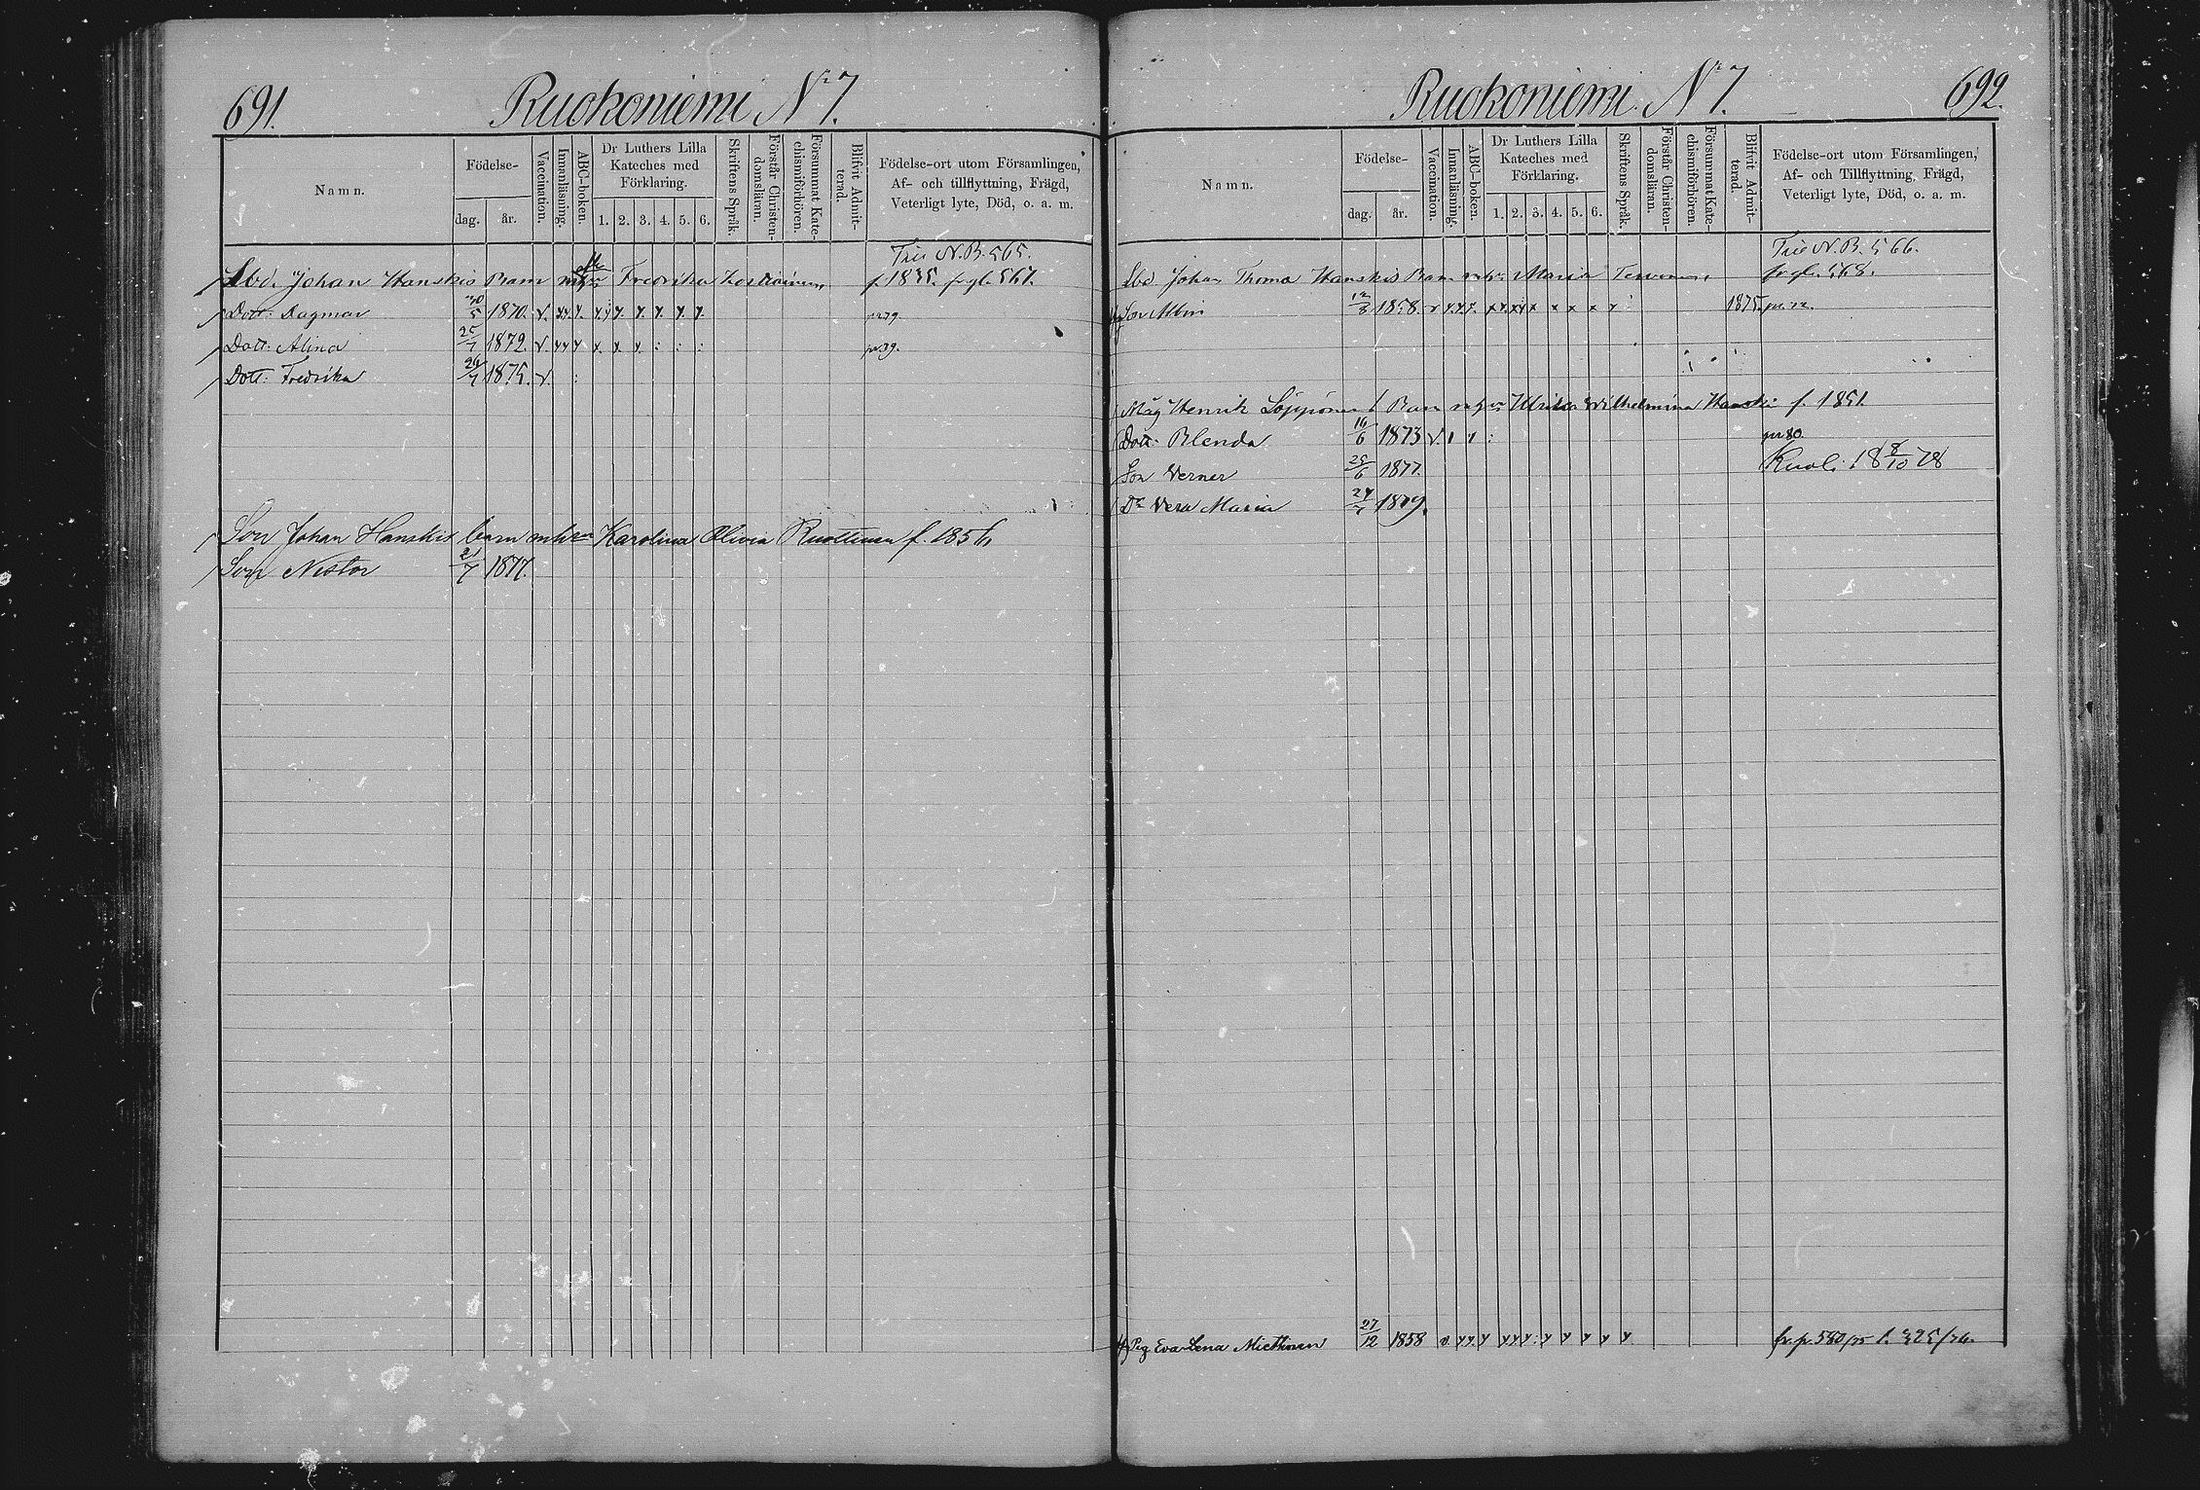 691.
Ruokoniemi No 7.
Namn.
Födelse-
dag.
år.
Vaccination.
Innanläsning.
ABC-boken.
Dr Luthers Lilla
Kateches med
Förklaring.
1. 2. 3. 4. 5. 6.
Skriftens Språk.
Förstår Christen-
domsläran.
Försummat Kate-
chismiförhören.
Blifvit Admit-
terad.
Födelse-ort utom Församlingen,
Af- och tillflyttning, Frägd,
Veterligt lyte, Död, o. a. m.
N.B. 565.
Lbd. Johan Hanskis Barn Fredrika f. 1835. 567.
Dott: Dagmar 20/5 1870. v.
Dott: Alina 25/7 1872. v.
Dott: Fredrika 26/7 1875. v.
Son Johan Hanskis barn Karolina Olivia Ruottinen f. 1856
Son Nestor 21/7 1877.
692.
Ruokoniemi No 7.
Namn.
Födelse-
dag.
år.
Vaccination.
Innanläsning.
ABC-boken.
Dr Luthers Lilla
Kateches med
Förklaring.
1. 2. 3. 4. 5. 6.
Skriftens Språk.
Förstår Christen-
domsläran.
Försummat Kate-
chismiförhören.
Blifvit Admit-
terad.
Födelse-ort utom Församlingen,
Af- och Tillflyttning, Frägd,
Veterligt lyte, Död, o. a. m.
N.B. 566.
Lbd Johan Thoma Hanskis Barn Maria Tervonen, 568.
Son Albin 12/3 1858. 1875.
Måg Henrik Löppönen Barn Ulrika Wilhelmina Hanski f. 1851
Dott: Blenda 16/6 1873 v.
Son Verner 25/6 1877. Kuol. 18 8/10 78
Dr Vera Maria 24/7 1879.
Pig Eva Lena Miettinen 27/12 1858 v